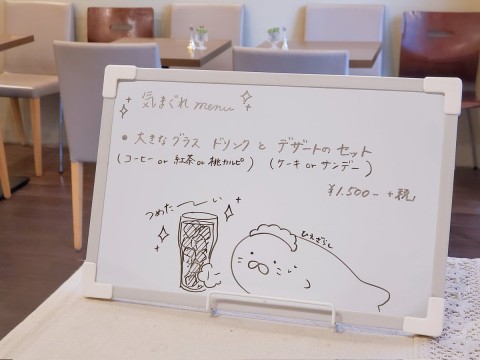 気まぐれ menu
• 大きなグラス ドリンク と デザートの セット
(コーヒー or 紅茶 or 桃カルピ) (ケーキ or サンデー)
¥1.500- +税
つめた〜い
ひえざらし